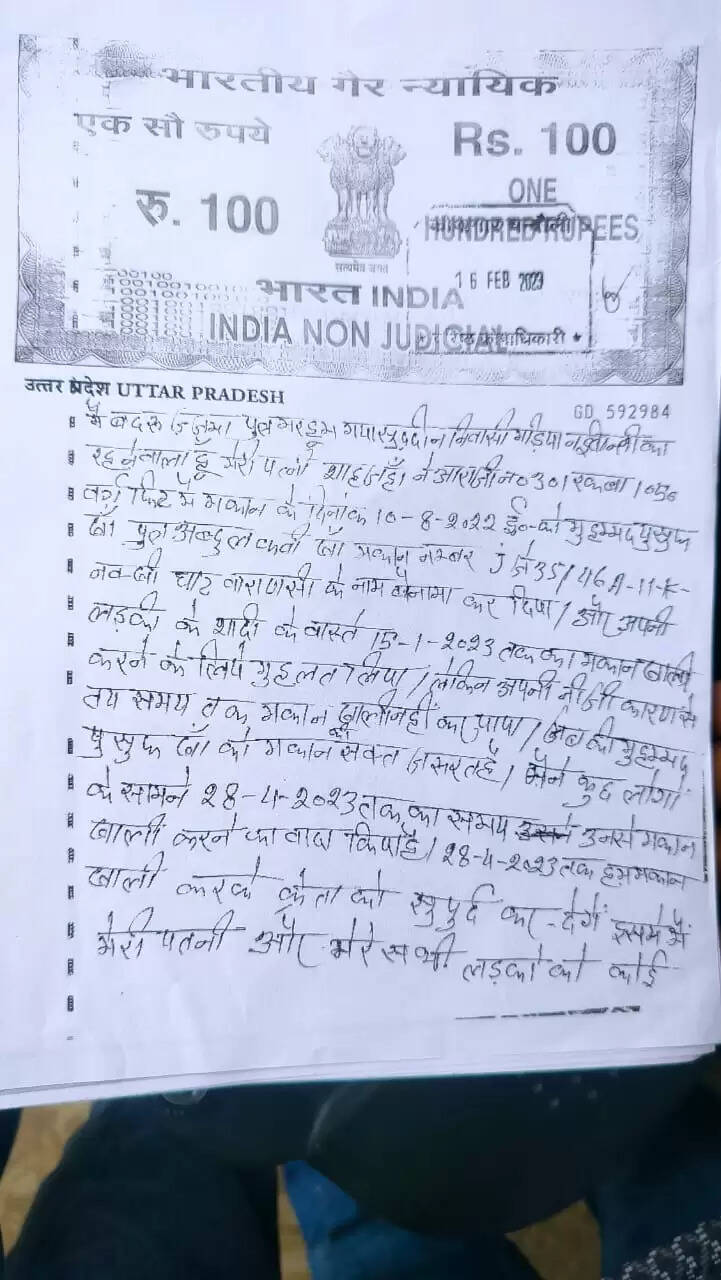 भारतीय गैर न्यायिक
एक सौ रुपये
Rs. 100
रु. 100
ONE
HUNDRED RUPEES
सत्यमेव जयते
16 FEB 2023
भारत INDIA
INDIA NON JUDICIAL
उत्तर प्रदेश UTTAR PRADESH
GD 592984
मैं बदरुज्जमा पुत्र मरहूम गयासुद्दीन निवासी का
रहनेवाला हूँ मेरी पत्नी शाहजहाँ ने आराजी न० 301 रकबा 1056
वर्ग फिट में मकान के दिनांक 10-8-2022 ई० को मुहम्मद युसुफ
खाँ पुत्र अब्दुल कवी खाँ मकान नम्बर J जे 35/46A-11-K-
घाट वाराणसी के नाम बैनामा कर दिया / और अपनी
लड़की के शादी के वास्ते 15-1-2023 तक का मकान खाली
करने के लिये मुहलत लिया / लेकिन अपनी नीजी कारण से
तय समय तक मकान खाली नहीं कर पाया / अब की मुहम्मद
युसुफ खाँ को मकान की सख्त जरूरत है / मैंने कुछ लोगों
के सामने 28-4-2023 तक का समय उनसे मकान
खाली करने का वादा किया है / 28-4-2023 तक हम मकान
खाली करके क्रेता को सुपुर्द कर देगें इसमें
मेरी पतनी और मेरे सभी लड़को को कोई